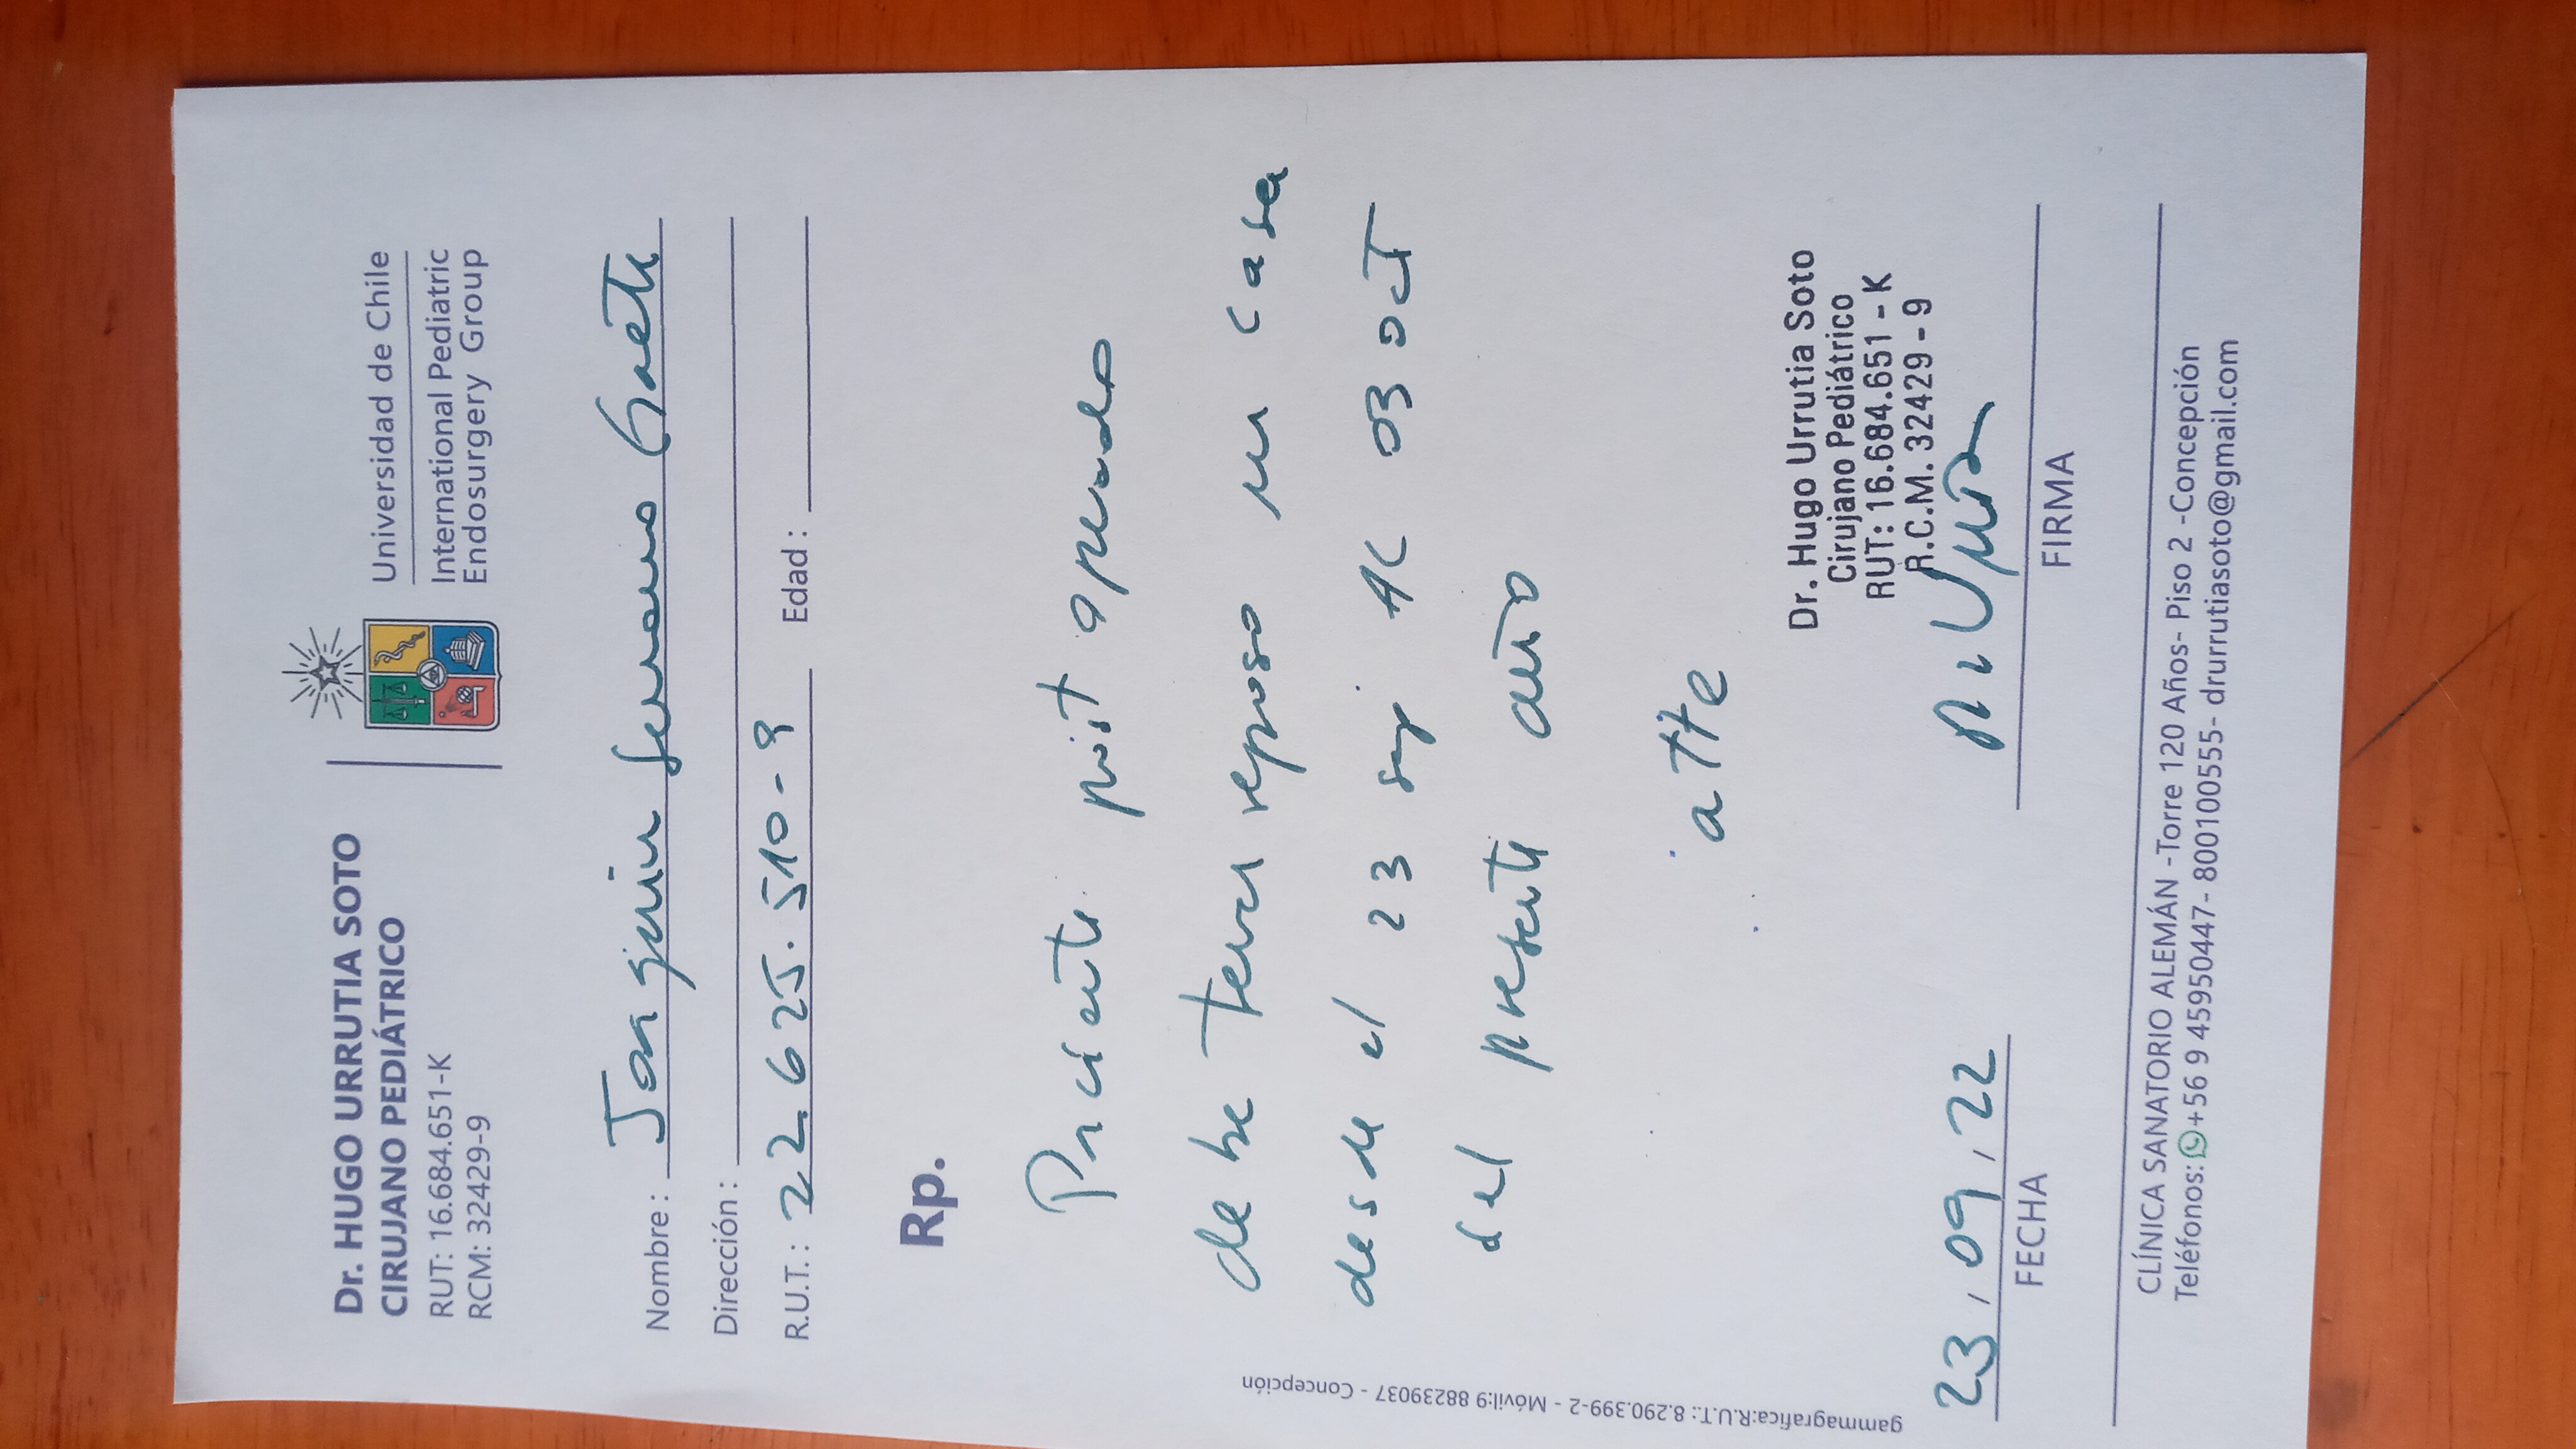 Dr. HUGO URRUTIA SOTO
CIRUJANO PEDIÁTRICO
RUT: 16.684.651-K
RCM: 32429-9
Universidad de Chile
International Pediatric
Endosurgery Group
Nombre : Joaquin Serrano Gaete
Dirección :
R.U.T. : 22.625.510-9 Edad :
Rp.
Paciente post operado
debe tener reposo en casa
desde el 23 sep al 03 oct
del presente año
atte
Dr. Hugo Urrutia Soto
Cirujano Pediátrico
RUT: 16.684.651 - K
R.C.M. 32429 - 9
23, 09, 22
FECHA
FIRMA
CLÍNICA SANATORIO ALEMÁN -Torre 120 Años- Piso 2 -Concepción
Teléfonos: +56 9 45950447- 800100555- drurrutiasoto@gmail.com
gammagrafica:R.U.T.: 8.290.399-2 - Móvil:9 88239037 - Concepción